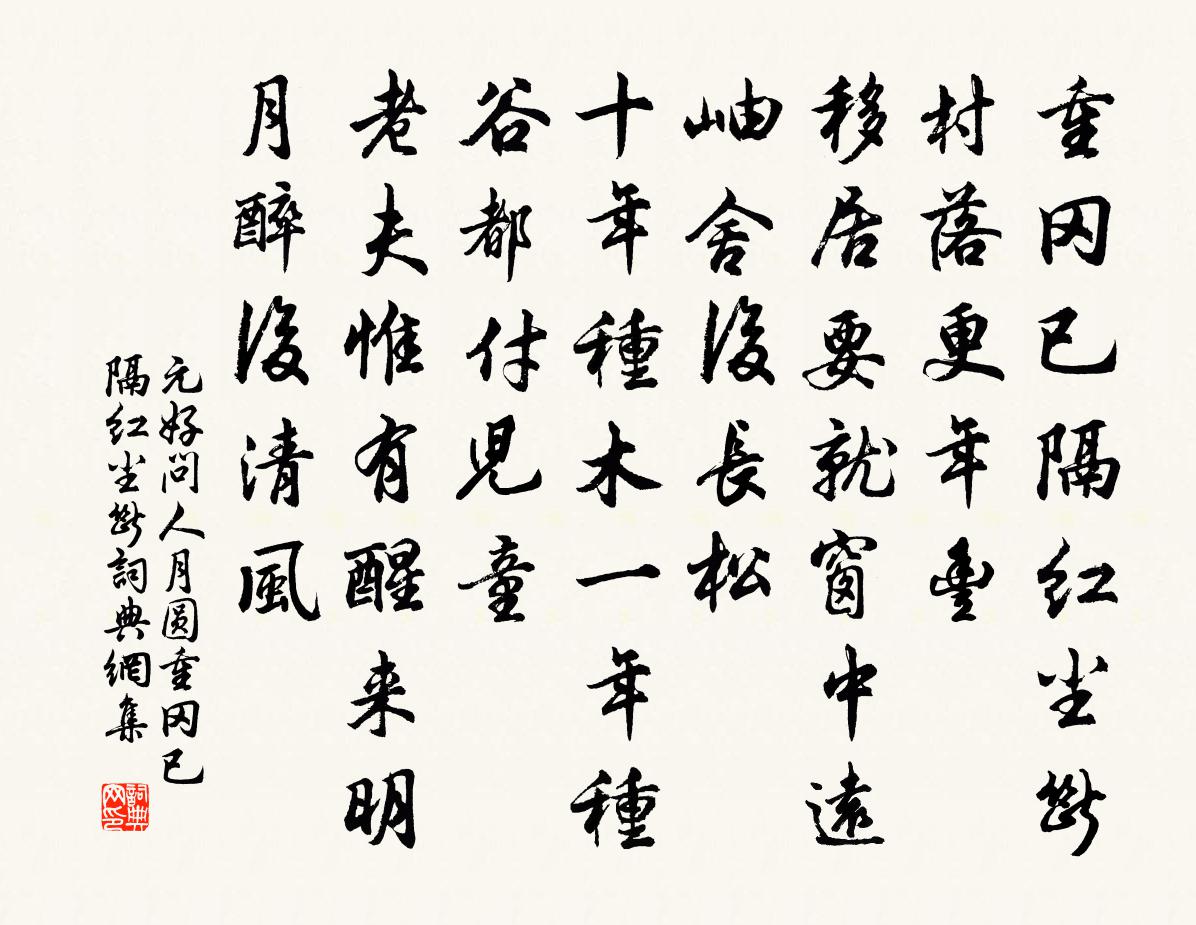 重冈已隔红尘断
村落更年豐
移居要就窗中遠
岫舍後長松
十年種木一年種
谷都付児童
老夫惟有醒来明
月醉後清風
元好问人月圆重冈已
隔红尘断詞典網集
詞典网印